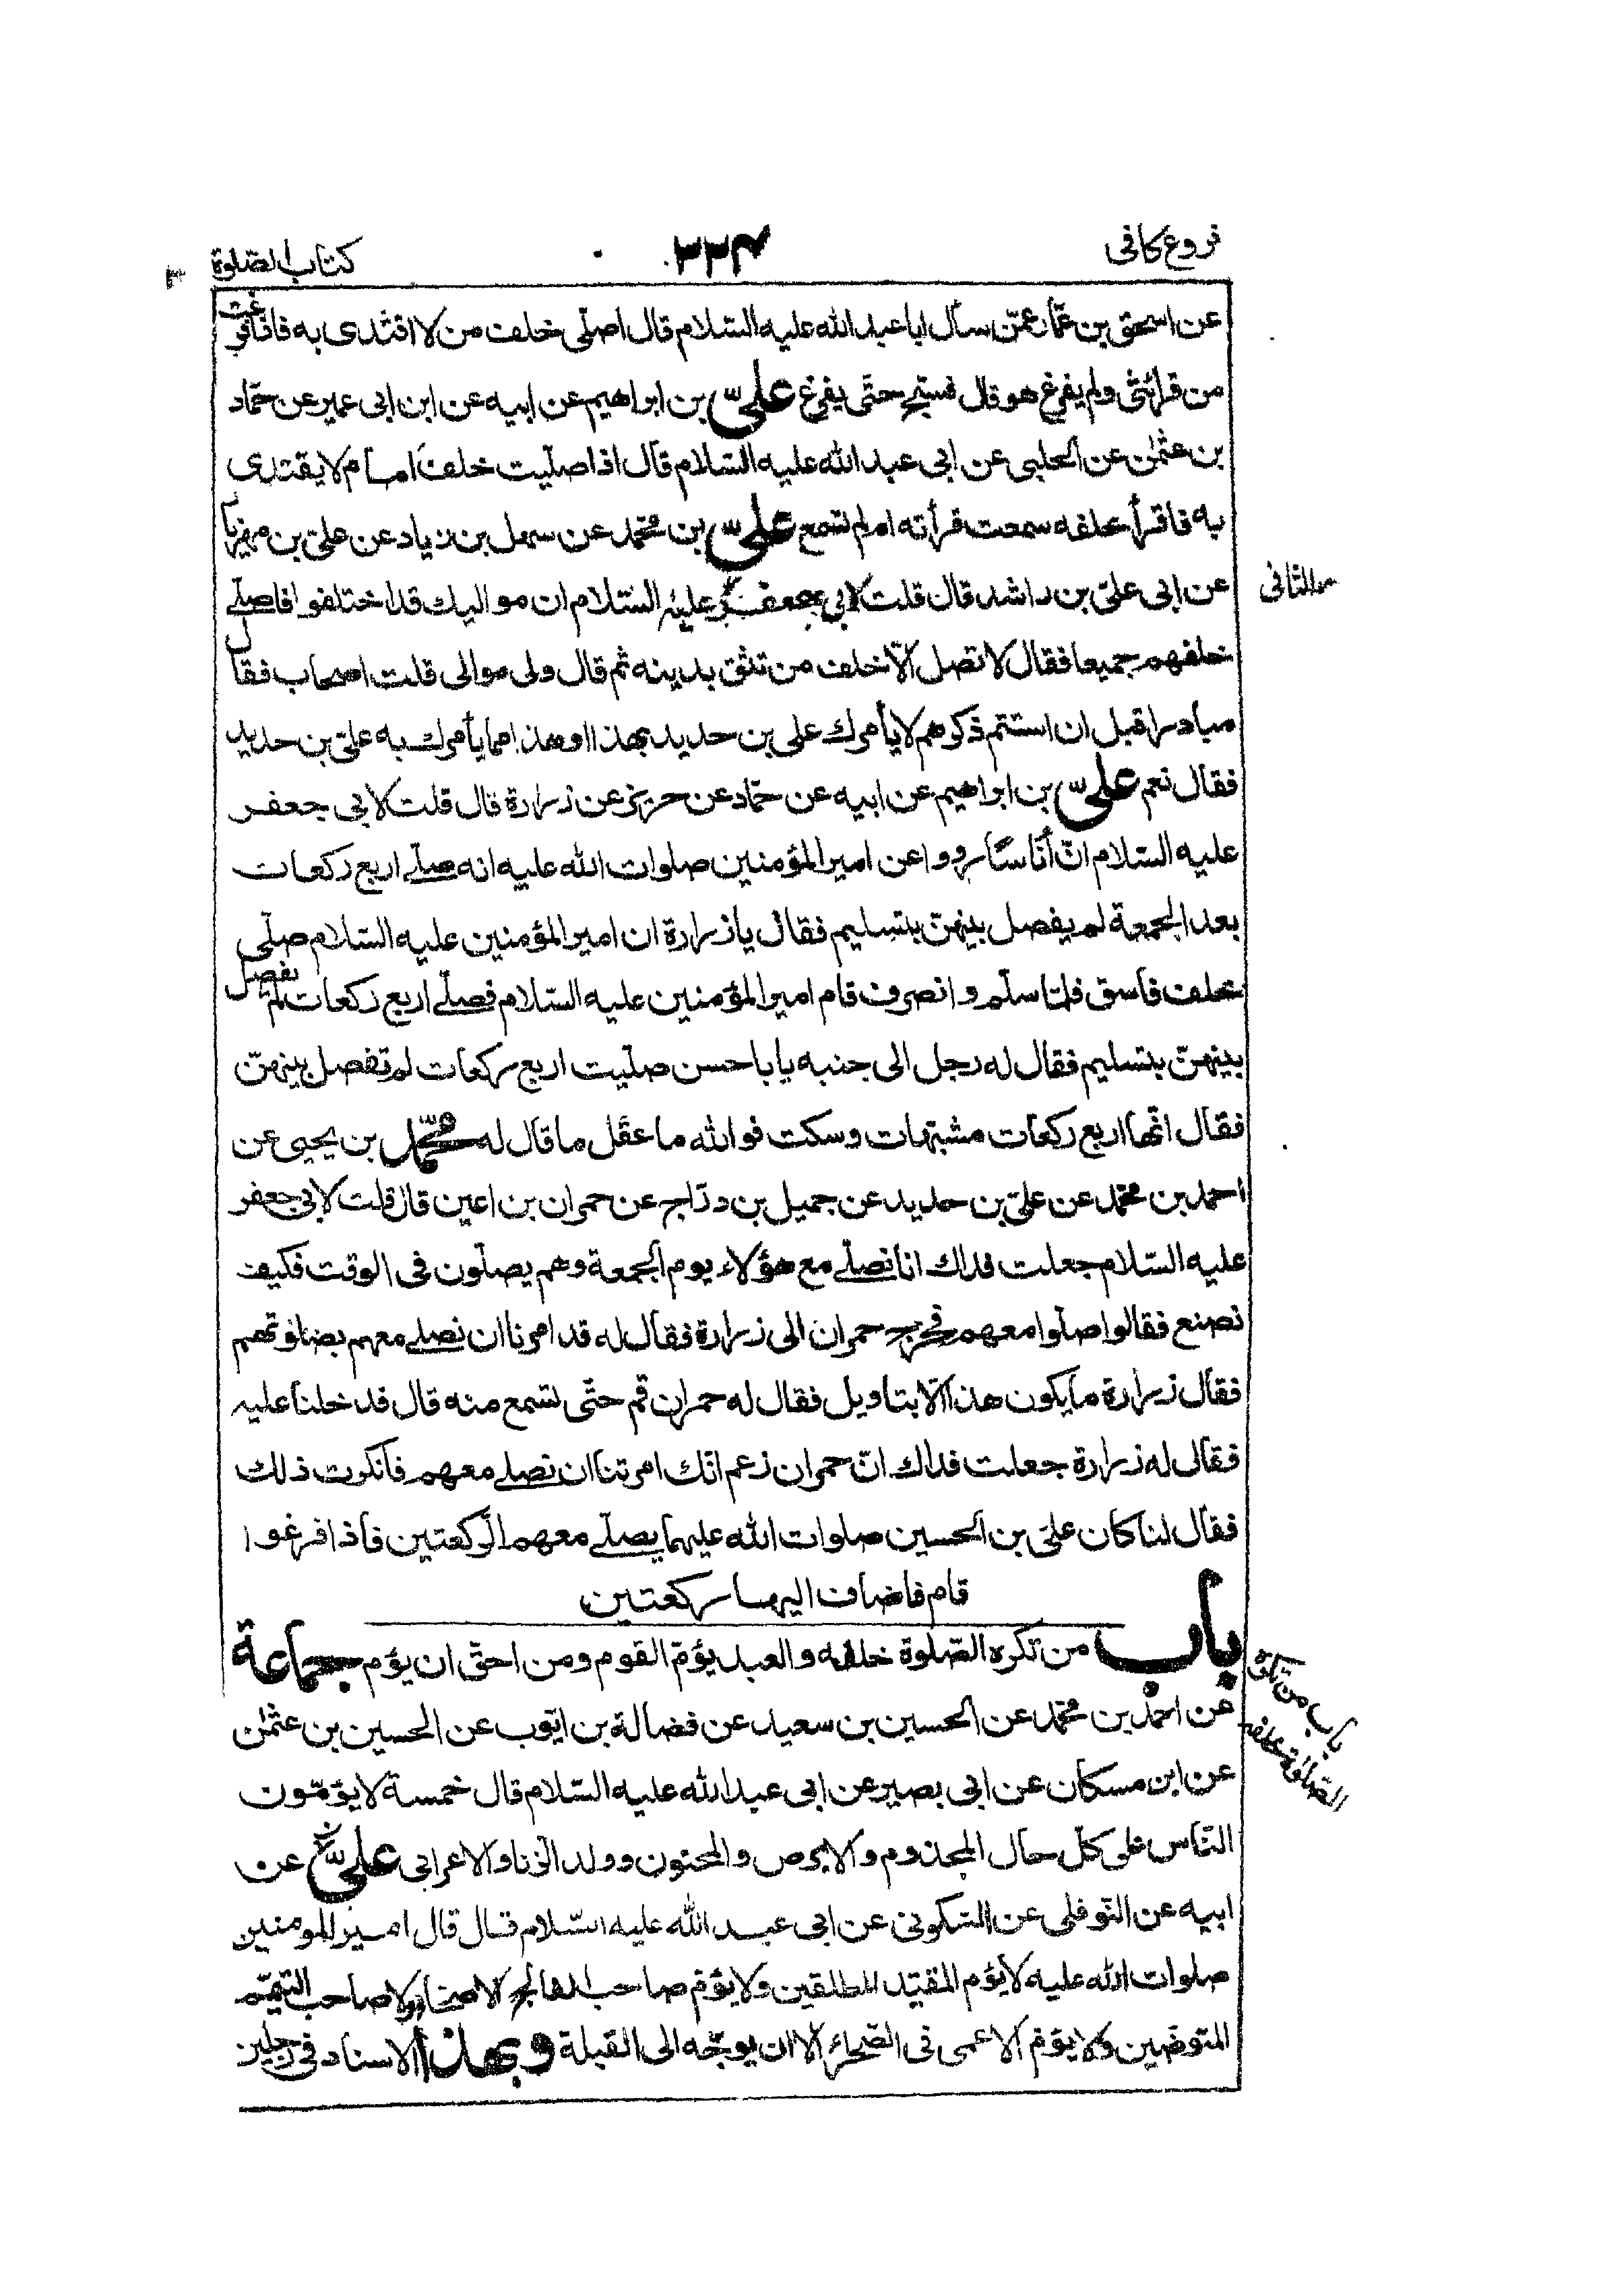 فروع كافى
٢٢٣
كتاب الصّلوة
عن اسحق بن عمّار عمّن سأل ابا عبد الله عليه السّلام قال اصلّى خلف من لا اقتدى به فاذا فرغت
من قرائتى ولم يفرغ هو قال فسبّح حتّى يفرغ علىّ بن ابراهيم عن ابيه عن ابن ابى عمير عن حمّاد
بن عثمٰن عن الحلبى عن ابى عبد الله عليه السّلام قال اذا صلّيت خلف امام لا يقتدى
به فاقرأ خلفه سمعت قرأته ام لم تسمع علىّ بن محمّد عن سهل بن زياد عن علىّ بن مهزيار
عن ابى علىّ بن راشد قال قلت لابى جعفر عليه السّلام ان مواليك قد اختلفوا فاصلّے
الثانى
خلفهم جميعا فقال لا تصل الّا خلف من تثق بدينه ثم قال ولى موالى قلت اصحاب فقال
مبادرا قبل ان استتم ذكرهم لا يأمرك على بن حديد بهذا او هذا مما يأمرك به علىّ بن حديد
فقال نعم علىّ بن ابراهيم عن ابيه عن حمّاد عن حريز عن زرارة قال قلت لابى جعفر
عليه السّلام انّ أناسًا رووا عن امير المؤمنين صلوات الله عليه انه صلّے اربع ركعات
بعد الجمعة لم يفصل بينهنّ بتسليم فقال يا زرارة ان امير المؤمنين عليه السّلام صلّى
خلف فاسق فلمّا سلّم وانصرف قام امير المؤمنين عليه السّلام فصلّے اربع ركعات لم يفصل
بينهنّ بتسليم فقال له رجل الى جنبه يا با حسن صلّيت اربع ركعات لم تفصل بينهنّ
فقال انّها اربع ركعات مشبّهات وسكت فوالله ما عقل ما قال له محمّد بن يحيى عن
احمد بن محمّد عن علىّ بن حديد عن جميل بن درّاج عن حمران بن اعين قال قلت لابى جعفر
عليه السّلام جعلت فداك انا نصلّے مع هؤلاء يوم الجمعة وهم يصلّون فى الوقت فكيف
نصنع فقالوا صلّوا معهم فخرج حمران الى زرارة فقال له قد امرنا ان نصلے معهم بصلوتهم
فقال زرارة ما يكون هذا الّا بتاويل فقال له حمران قم حتّى تسمع منه قال فدخلنا عليه
فقال له زرارة جعلت فداك انّ حمران زعم انّك امرتنا ان نصلے معهم فانكرت ذلك
فقال لنا كان علىّ بن الحسين صلوات الله عليهما يصلّے معهم الرّكعتين فاذا فرغوا
قام فاضاف اليهما ركعتين
باب من تكره الصّلوة خلفه والعبد يؤمّ القوم ومن احقّ ان يؤم جماعة
باب من تكره
الصّلوة خلفه
عن احمد بن محمّد عن الحسين بن سعيد عن فضالة بن ايّوب عن الحسين بن عثمٰن
عن ابن مسكان عن ابى بصير عن ابى عبد الله عليه السّلام قال خمسة لا يؤمّون
النّاس على كلّ حال المجذوم والابرص والمجنون وولد الزّنا والاعرابى علىّ عن
ابيه عن النّوفلى عن السّكونى عن ابى عبد الله عليه السّلام قال قال امير المومنين
صلوات الله عليه لا يؤم المقيّد المطلقين ولا يؤمّ صاحب الفالج الاصحاء ولا صاحب التيمّم
المتوضّين ولا يؤمّ الاعمى فى الصّحراء الا ان يوجّه الى القبلة وبهذا الاسناد فى رجلين